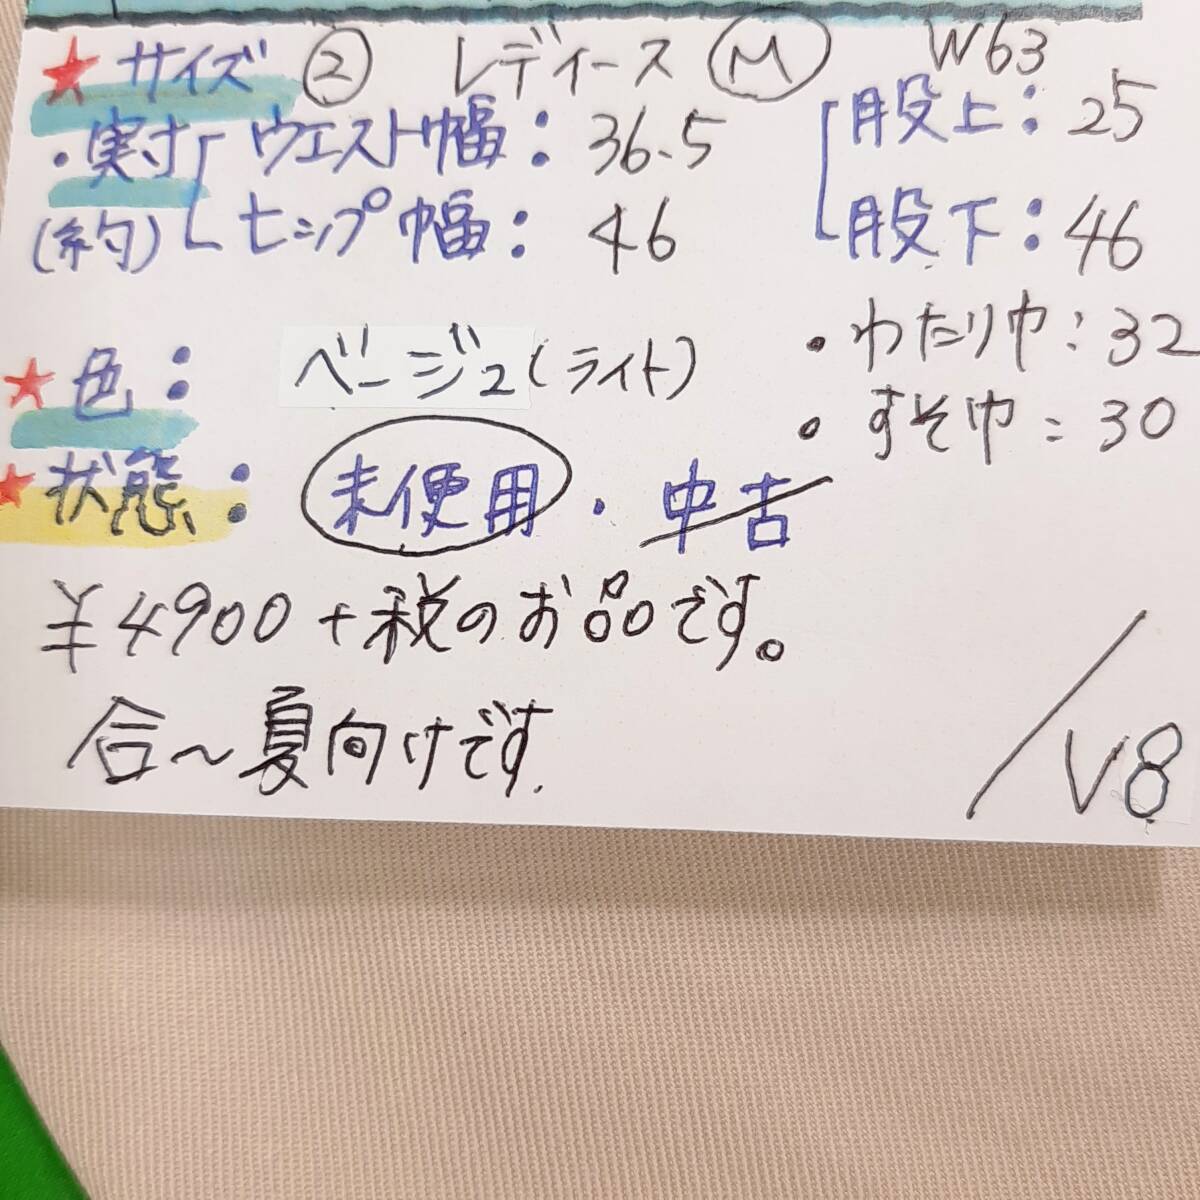 ★ サイズ ② レディース Ⓜ W63
・実寸 ウエスト幅：36.5
(約) ヒップ幅：46
股上：25
股下：46
・わたり巾：32
・すそ巾：30
★ 色： ベージュ(ライト)
★ 状態： 未使用・中古
¥4900+税のお品です。
合〜夏向けです.
/V8